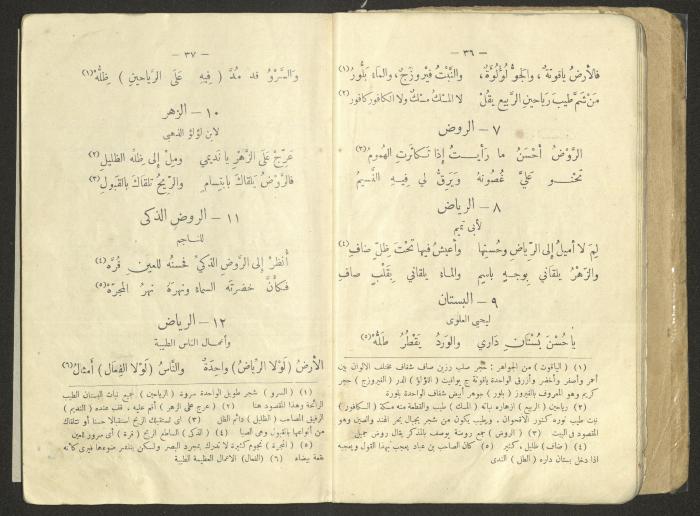 — ٣٦ —
فالأرضُ ياقوتةٌ، والجوُّ لُؤلُؤةٌ، والنَّبْتُ فَيْروزَجٌ، والماء بَلُّورُ (١)
مَنْ شَمَّ طيبَ رَياحينِ الرَّبيعِ يقُلْ لا المسْكُ مسْكٌ ولا الكافور كافور (٢)
٧ – الروض
الرَّوْضُ أَحْسَنُ ما رَأَيتُ إذا تكاثَرتِ الهُمُومُ (٣)
تحْنُو عليَّ غُصُونهُ ويَرِقُّ لي فِيهِ النَّسِيمُ
٨ – الرياض
لأبى تميم
لِمَ لا أميلُ إلى الرِّياضِ وحُسنِها وأعيشُ فيها تحْتَ ظِلٍّ ضافِ (٤)
والزَّهْرُ يلقاني بِوجهٍ باسِمٍ والماء يلقاني بِقَلْبٍ صافِ
٩ – البستان
ليحيى العلوى
ياحُسْنَ بُسْتانِ دَارِي والوردُ يَقْطُرُ طلُّهُ (٥)
(١) (الياقوت) من الجواهر : حجر صلب رزين صاف شفاف مختلف الالوان بين
أحمر وأصفر وأخضر وأزرق الواحدة ياقوتة ج يواقيت (اللؤلؤ) الدر (الفيروزج) حجر
كريم وهو المعروف بالفيروز (بلور) جوهر أبيض شفاف الواحدة بلورة
(٢) رياحين (الربيع) ازهاره نباته (المسك) طيب والقطعة منه مسكة (الكافور)
نبت طيب نوره كنور الاقحوان . وطيب يكون من شجر بجبال بحر الهند والصين وهو
المقصود فى البيت (٣) (الروض) جمع روضة يوصف بالمذكر يقال روض جميل
(٤) (ضاف) ظليل . كثير (٥) كان الصاحب بن عباد يعجب بهذا القول ويعجبه
اذا دخل بستان داره (الطل) الندى
— ٣٧ —
والسَّرْوُ قد مُدَّ (فِيهِ على الرَّياحينِ) ظِلُّهُ (١)
١٠ – الزهر
لابن لؤلؤ الذهبى
عَرِّجْ عَلَى الزَّهْرِ يا نَديمي ومِلْ إلى ظِلِّه الظليلِ (٢)
فالرَّوْضُ يَلقاكَ بابتِسامٍ والرِّيحُ تلقاكَ بالقَبولِ (٣)
١١ – الروض الذكى
للناجم
أُنظرْ إلى الرَّوضِ الذكيِّ فحسنُه للعينِ قُرَّهْ (٤)
فكأنَّ خضرتَه السماء ونهرَهُ نهرُ المجرّهْ (٥)
١٢ – الرياض
وأعمال الناس الطيبة
الأَرضُ (لَوْلا الرِّياضُ) واحِدَةٌ والنَّاسُ (لَوْلا الفِعَال) أَمثالُ (٦)
(١) (السرو) شجر طويل الواحدة سروة (الرياحين) جميع نبات البستان الطيب
الرائحة وهذا المقصود هنا (٢) (عرج على الزهر) أقم عليه . قف عنده (النديم)
الرفيق المصاحب (الظليل) دائم الظل (٣) اى تستقبلك الريح استقبالا حسنا أو تلقاك
من أنواعها بالقبول وهى الصبا (٤) (الذكى) الساطع الريح (قرة) أى سرور للعين
(٥) (المجرة) نجوم كثيرة لا تدرك بمجرد البصر ولسكن ينتشر ضوءها فيرى كأنه
بقعة بيضاء (٦) (الفعال) الاعمال العظيمة الطيبة